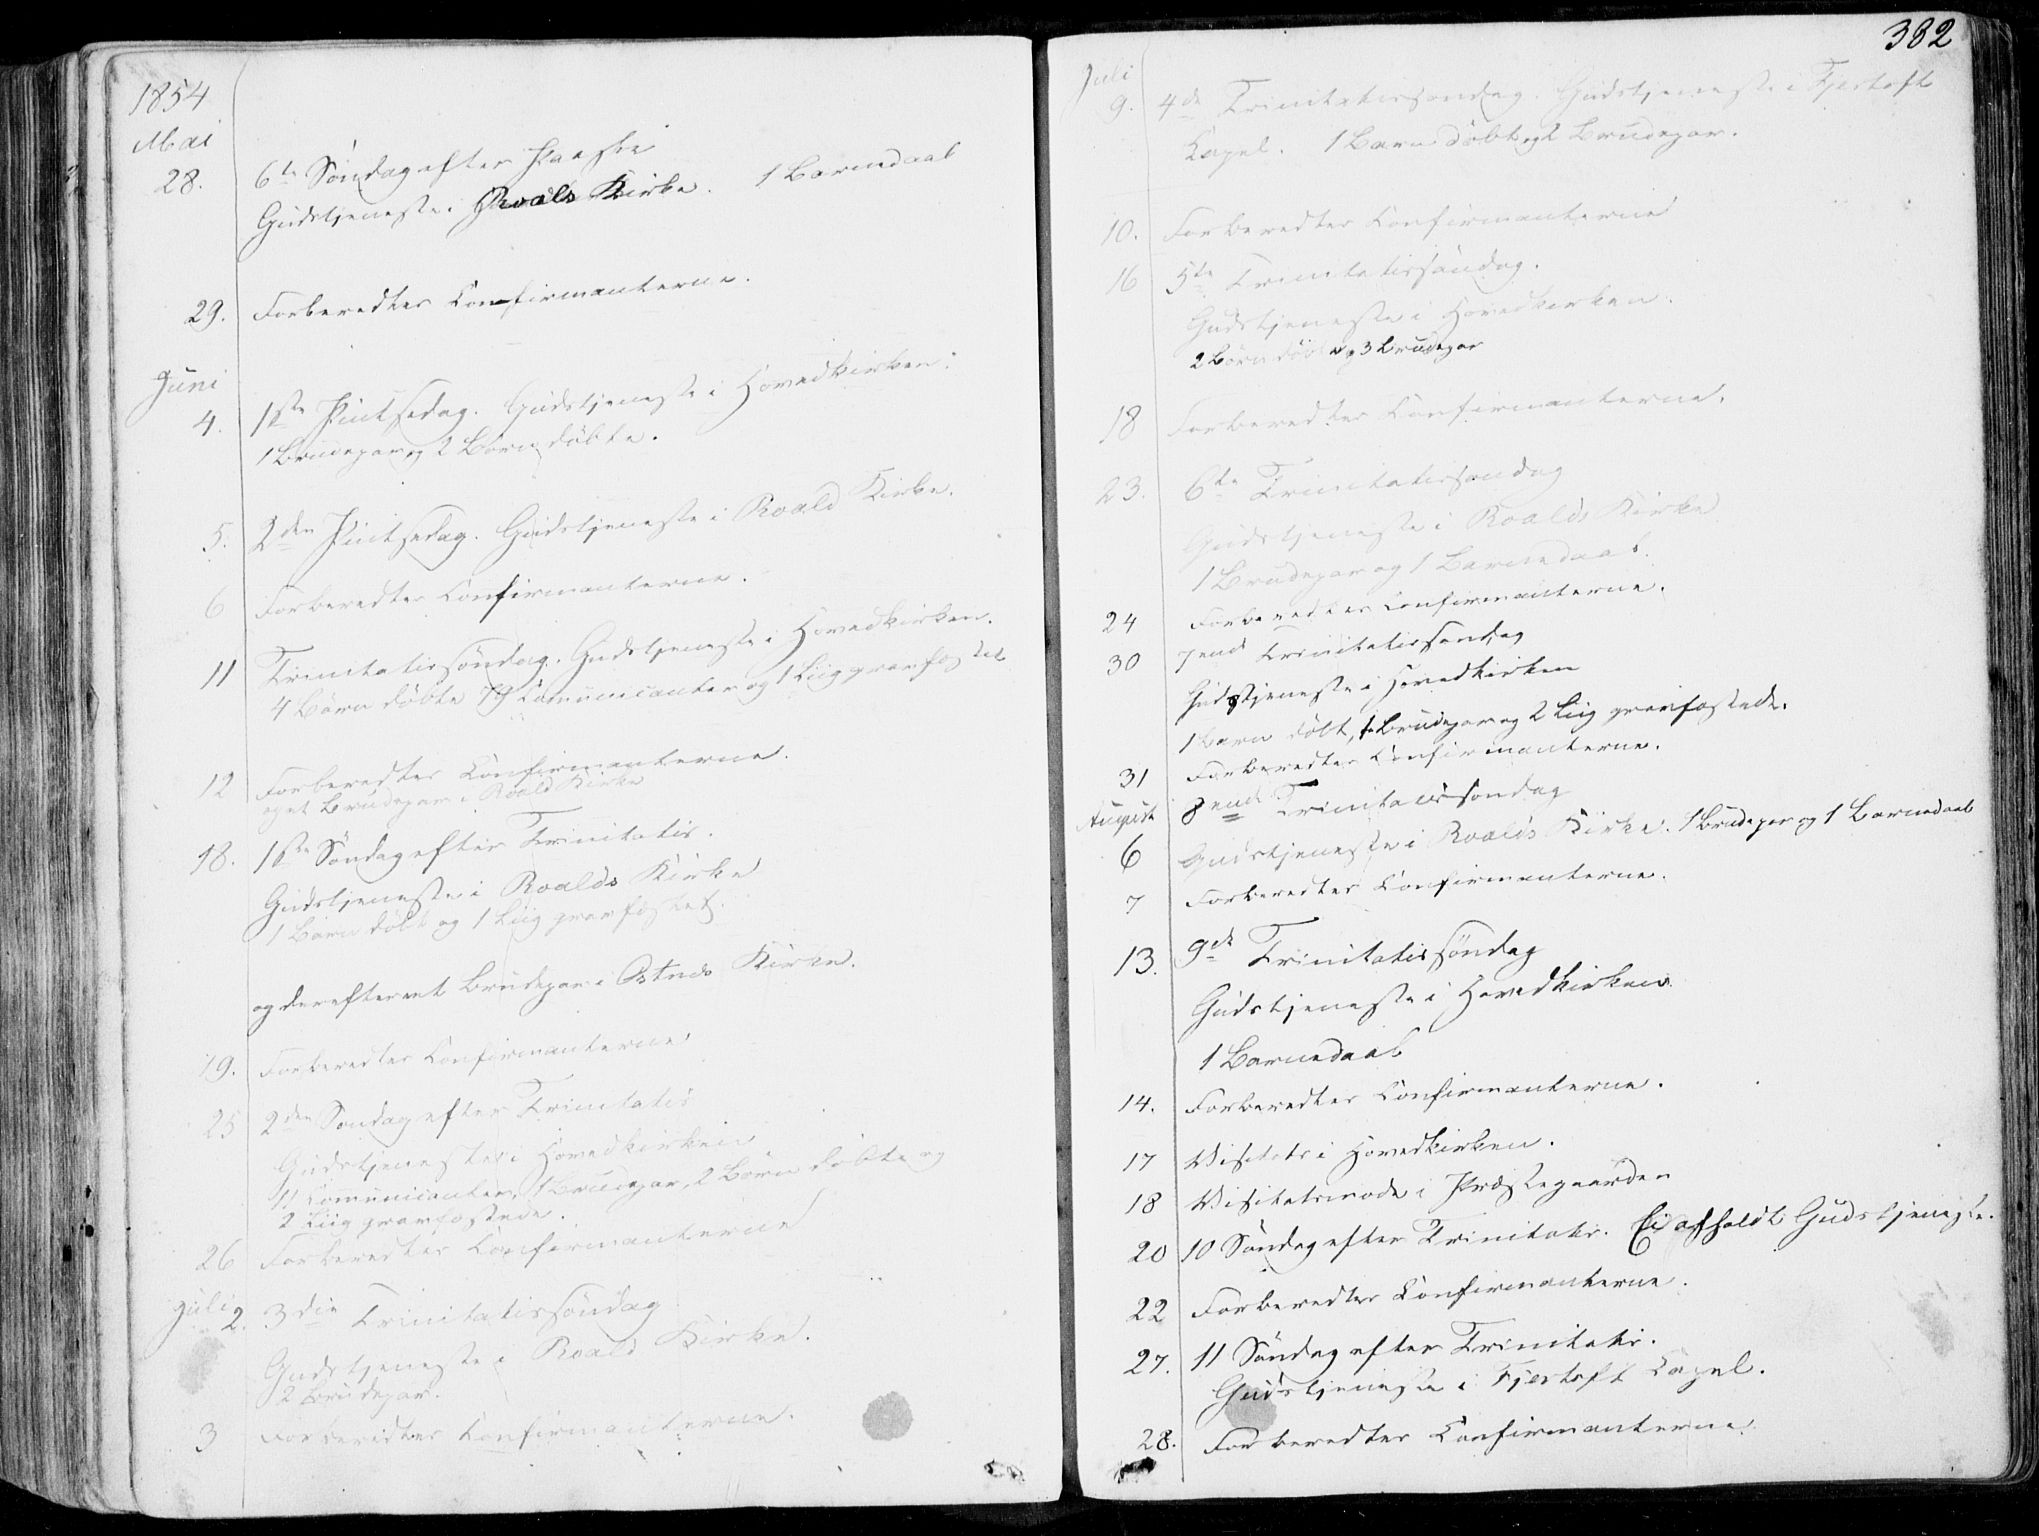 1854
Mai
28. 6te Søndag efter Paaske
Gudstjeneste i Roalds Kirke. 1 Barnedaab
29. Forberedtes Confirmanterne.
Juni
4. 1ste Pintsedag. Gudstjeneste i Hovedkirken.
1 Brudepar og 2 Børn døbte.
5. 2den Pintsedag. Gudstjeneste i Roald Kirke.
6 Forberedtes Confirmanterne.
11 Trinitatissøndag. Gudstjeneste i Hovedkirken.
4 Børn døbte 79 Communicanter og 1 Liig gravfæstet
12 Forberedtes Confirmanterne.
og et Brudepar i Roald Kirke
18. 1ste Søndag efter Trinitatis.
Gudstjeneste i Roalds Kirke
1 Barn døbt og 1 Liig gravfæstet.
og derefter et Brudepar i Østnæs Kirke.
19. Forberedtes Confirmanterne
25 2den Søndag efter Trinitatis
Gudstjeneste i Hovedkirken
11 Communicanter, 1 Brudepar, 2 Børn døbte og
2 Liig gravfæstede.
26 Forberedtes Confirmanterne
Juli 2. 3die Trinitatissøndag
Gudstjeneste i Roald Kirke.
2 Brudepar.
3 Forberedtes Confirmanterne.
382
Juli
9. 4de Trinitatissøndag. Gudstjeneste i Fjertoft
Capel. 1 Barn døbt og 2 Brudepar.
10. Forberedtes Confirmanterne
16 5te Trinitatissøndag.
Gudstjeneste i Hovedkirken.
2 Børn døbte og 3 Brudepar
18 Forberedtes Confirmanterne.
23. 6te Trinitatissøndag
Gudstjeneste i Roalds Kirke
1 Brudepar og 1 Barnedaab.
24 Forberedtes Confirmanterne.
30 7ende Trinitatissøndag
Gudstjeneste i Hovedkirken
1 Barn døbt, 1 Brudepar og 2 Liig gravfæstede.
31 Forberedtes Confirmanterne.
August 8ende Trinitatissøndag
6 Gudstjeneste i Roalds Kirke. 1 Brudepar og 1 Barnedaab
7 Forberedtes Confirmanterne.
13. 9de Trinitatissøndag
Gudstjeneste i Hovedkirken
1 Barnedaab
14. Forberedtes Confirmanterne.
17 Visitats i Hovedkirken.
18 Visitatsmøde i Præstegaarden
20 10 Søndag efter Trinitatis. Ei afholdt Gudstjeneste.
22 Forberedtes Confirmanterne.
27. 11 Søndag efter Trinitatis.
Gudstjeneste i Fjertoft Capel.
28. Forberedtes Confirmanterne.